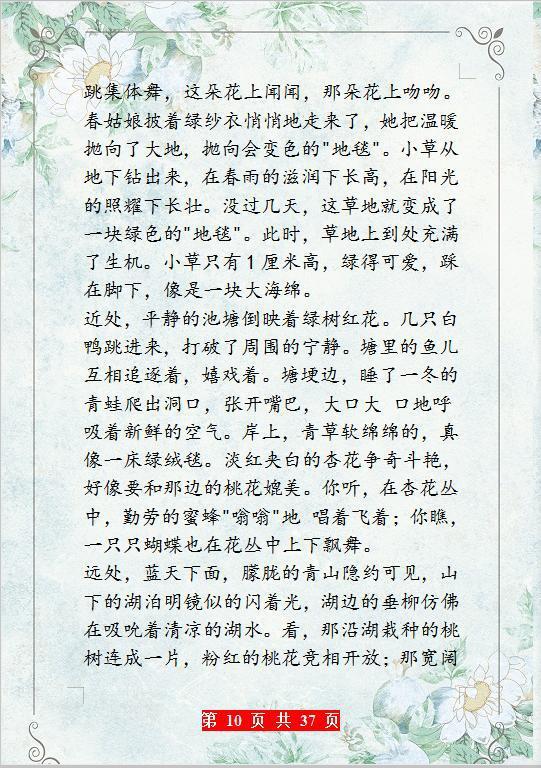 跳集体舞，这朵花上闻闻，那朵花上吻吻。
春姑娘披着绿纱衣悄悄地走来了，她把温暖
抛向了大地，抛向会变色的"地毯"。小草从
地下钻出来，在春雨的滋润下长高，在阳光
的照耀下长壮。没过几天，这草地就变成了
一块绿色的"地毯"。此时，草地上到处充满
了生机。小草只有1厘米高，绿得可爱，踩
在脚下，像是一块大海绵。
近处，平静的池塘倒映着绿树红花。几只白
鸭跳进来，打破了周围的宁静。塘里的鱼儿
互相追逐着，嬉戏着。塘埂边，睡了一冬的
青蛙爬出洞口，张开嘴巴，大口大 口地呼
吸着新鲜的空气。岸上，青草软绵绵的，真
像一床绿绒毯。淡红夹白的杏花争奇斗艳，
好像要和那边的桃花媲美。你听，在杏花丛
中，勤劳的蜜蜂"嗡嗡"地 唱着飞着；你瞧，
一只只蝴蝶也在花丛中上下飘舞。
远处，蓝天下面，朦胧的青山隐约可见，山
下的湖泊明镜似的闪着光，湖边的垂柳仿佛
在吸吮着清凉的湖水。看，那沿湖栽种的桃
树连成一片，粉红的桃花竞相开放；那宽阔
第 10 页 共 37 页